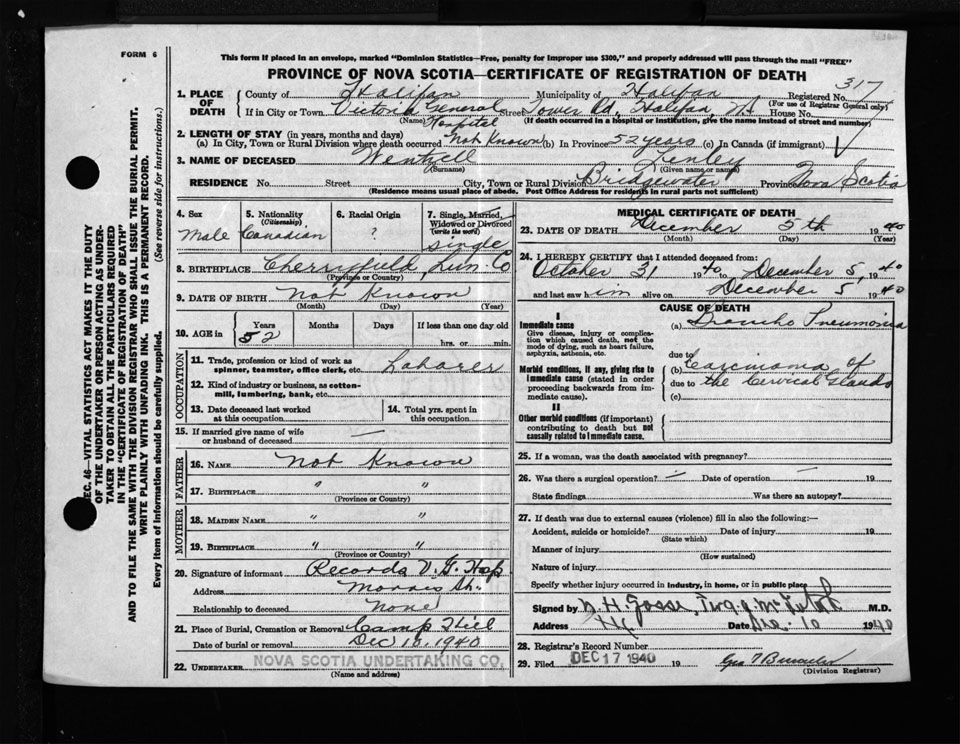 FORM 6
This form if placed in an envelope, marked "Dominion Statistics—Free, penalty for improper use $300," and properly addressed will pass through the mail "FREE"
PROVINCE OF NOVA SCOTIA—CERTIFICATE OF REGISTRATION OF DEATH
317
1. PLACE OF DEATH
County of Halifax Municipality of Halifax Registered No.
(For use of Registrar General only)
If in City or Town Victoria General Hospital Street Tower Rd, Halifax, NS House No.
(Name) (If death occurred in a hospital or institution, give the name instead of street and number)
2. LENGTH OF STAY (in years, months and days)
(a) In City, Town or Rural Division where death occurred Not Known (b) In Province 52 years (c) In Canada (if immigrant)
3. NAME OF DECEASED Wentzell Lenley
(Surname) (Given name or names)
RESIDENCE No. Street City, Town or Rural Division Bridgewater Province Nova Scotia
(Residence means usual place of abode. Post Office Address for residents in rural parts not sufficient)
4. Sex Male
5. Nationality (Citizenship) Canadian
6. Racial Origin ?
7. Single, Married, Widowed or Divorced (Write the word) single
8. BIRTHPLACE Cherryfield Lun. Co
(Province or Country)
9. DATE OF BIRTH not Known
(Month) (Day) (Year)
10. AGE in Years Months Days If less than one day old
52 hrs. or min.
OCCUPATION
11. Trade, profession or kind of work as spinner, teamster, office clerk, etc.
12. Kind of industry or business, as cotton-mill, lumbering, bank, etc.
13. Date deceased last worked at this occupation
14. Total yrs. spent in this occupation
15. If married give name of wife or husband of deceased —
FATHER
16. NAME not Known
17. BIRTHPLACE " "
(Province or Country)
MOTHER
18. MAIDEN NAME " "
19. BIRTHPLACE " "
(Province or Country)
20. Signature of informant Records V. G. Hosp
Address Morris St.
Relationship to deceased None
21. Place of Burial, Cremation or Removal Camp Hill
Date of burial or removal Dec 18. 1940
22. UNDERTAKER NOVA SCOTIA UNDERTAKING CO.
(Name and address)
MEDICAL CERTIFICATE OF DEATH
23. DATE OF DEATH December 5th 1940
(Month) (Day) (Year)
24. I HEREBY CERTIFY that I attended deceased from:
October 31 1940 to December 5, 1940
and last saw him alive on December 5, 1940
CAUSE OF DEATH
I
Immediate cause
Give disease, injury or complication which caused death, not the mode of dying, such as heart failure, asphyxia, asthenia, etc.
(a) Broncho Pneumonia
due to
Morbid conditions, if any, giving rise to immediate cause (stated in order proceeding backwards from immediate cause).
(b) Carcinoma of
due to the Cervical Glands
(c)
II
Other morbid conditions (if important) contributing to death but not causally related to immediate cause.
25. If a woman, was the death associated with pregnancy?
26. Was there a surgical operation? — Date of operation —
State findings Was there an autopsy?
27. If death was due to external causes (violence) fill in also the following:—
Accident, suicide or homicide? Date of injury 19
(State which)
Manner of injury
(How sustained)
Nature of injury
Specify whether injury occurred in industry, in home, or in public place
Signed by N. H. Gosse, M.D.
Address Hfx Date Dec. 10 1940
28. Registrar's Record Number
29. Filed DEC 17 1940 19
(Division Registrar)
SEC. 46—VITAL STATISTICS ACT MAKES IT THE DUTY
OF THE UNDERTAKER OR PERSON ACTING AS UNDER-
TAKER TO OBTAIN ALL THE PARTICULARS REQUIRED
IN THE "CERTIFICATE OF REGISTRATION OF DEATH"
AND TO FILE THE SAME WITH THE DIVISION REGISTRAR WHO SHALL ISSUE THE BURIAL PERMIT.
WRITE PLAINLY WITH UNFADING INK. THIS IS A PERMANENT RECORD.
Every item of Information should be carefully supplied. (See reverse side for instructions.)